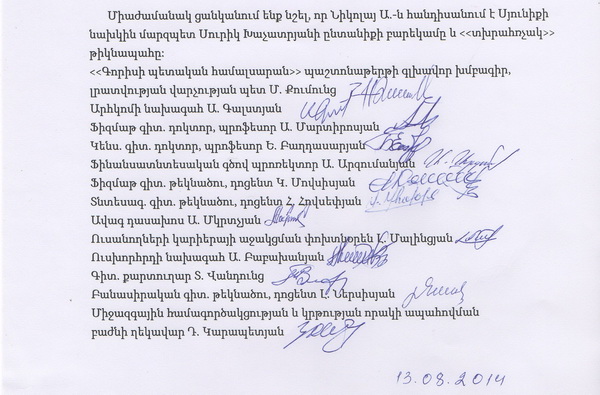 Միաժամանակ ցանկանում ենք նշել, որ Նիկոլայ Ա.-ն հանդիսանում է Սյունիքի
նախկին մարզպետ Սուրիկ Խաչատրյանի ընտանիքի բարեկամը և <<տխրահռչակ>>
թիկնապահը:
<<Գորիսի պետական համալսարան>> պաշտոնաթերթի գլխավոր խմբագիր,
լրատվության վարչության պետ Մ. Քումունց
Արհկոմի նախագահ Ա. Գալստյան
Ֆիզմաթ գիտ. դոկտոր, պրոֆեսոր Ա. Մարտիրոսյան
Կենս. գիտ. դոկտոր, պրոֆեսոր Ե. Բաղդասարյան
Ֆինանսատնտեսական գծով պրոռեկտոր Ա. Արզումանյան
Ֆիզմաթ գիտ. թեկնածու, դոցենտ Կ. Մովսիսյան
Տնտեսագ. գիտ. թեկնածու, դոցենտ Հ. Հովսեփյան
Ավագ դասախոս Ա. Մկրտչյան
Ուսանողների կարիերայի աջակցման փոխտնօրեն Կ. Մալինցյան
Ուսխորհրդի նախագահ Ա. Բաբախանյան
Գիտ. քարտուղար Տ. Վանդունց
Բանասիրական գիտ. թեկնածու, դոցենտ Լ. Ներսիսյան
Միջազգային համագործակցության և կրթության որակի ապահովման
բաժնի ղեկավար Դ. Կարապետյան
13.08.2014